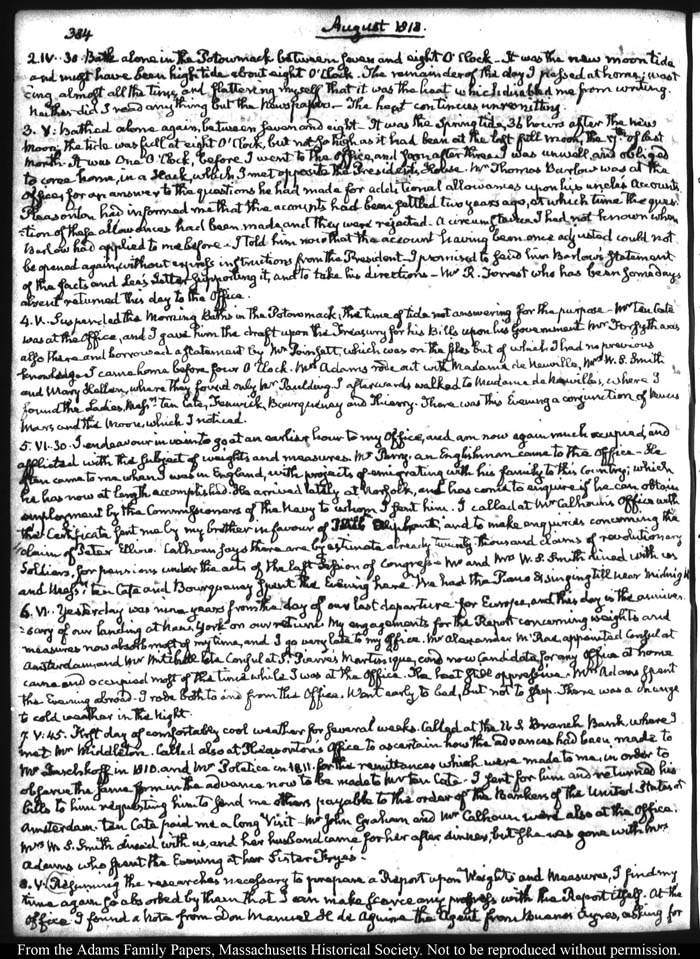 384
August 1818.
2. IV..30. Bath alone in the Potowmack between seven and eight O'Clock — It was the new moon tide
and must have been high tide about eight O'Clock. The remainder of the day I passed at home; wast
ing almost all the time, and flattering myself that it was the heat which disabled me from writing.
Neither did I read any thing but the Newspapers — The heat continues unremitting.
3. V. Bathed alone again, between seven and eight — It was the Spring tide, 36 hours after the new
moon; the tide was full at eight O'Clock, but not so high as it had been at the last full moon, the 17th of last
month. It was One O'Clock, before I went to the Office, and soon after three I was unwell, and obliged
to come home, in a Hack, which I met opposite the President's House. Mr Thomas Barlow was at the
Office, for an answer to the questions he had made for additional allowances upon his uncle's Accounts.
Pleasonton had informed me that the accounts had been settled two years ago, at which time the ques
-tion of these allowances had been made, and they were rejected — A circumstance I had not known when
Barlow had applied to me before — I told him now that the account having been once adjusted could not
be opened again, without express instructions from the President — I promised to send him Barlow's Statement
of the facts and Lee's Letter supporting it, and to take his directions — Mr R. Forrest who has been some days
absent returned this day to the Office.
4. V. Suspended the Morning Baths in the Potowmack, the time of tide not answering for the purpose — Mr ten Cate
was at the Office, and I gave him the draft upon the Treasury for his bills upon his Government. Mr Forsyth was
also there and borrowed a Statement by Mr Poinsett, which was on the files but of which I had no previous
knowledge. I came home before four O'Clock. Mrs Adams rode out with Madame de Neuville, Mrs W. S. Smith
and Mary Hellen, where they found only Mr Paulding. I afterwards walked to Madame de Neuville's, where I
found the Ladies, Messrs ten Cate, Fenwick, Bourquenay and Thierry. There was this Evening a conjunction of Venus
Mars and the Moon, which I noticed.
5. VI..30. I endeavour in vain to go at an earlier hour to my Office, and am now again much occupied, and
afflicted with the subject of weights and measures. Mr Parry, an Englishman came to the Office — He
often came to me, when I was in England, with projects of emigrating with his family to this Country; which
he has now at length accomplished. He arrived lately at Norfolk, and has come to enquire if he can obtain
employment by the Commissioners of the Navy to whom I sent him. I called at Mr Calhoun's Office with
the Certificate sent me by my brother in favour of Oliphant; and to make enquiries concerning the
claim of Peter Ellins. Calhoun says there are by estimate already twenty thousand claims of revolutionary
Soldiers, for pensions under the acts of the last Session of Congress — Mr and Mrs W. S. Smith dined with us
and Messrs ten Cate and Bourquenay spent the Evening here. We had the Piano & singing till near Midnight
6. VI. Yesterday was nine years from the day of our last departure for Europe, and this day is the annivers
-sary of our landing at New York on our return. My engagements for the Report concerning weights and
measures now absorb most of my time, and I go very late to my Office. Mr Alexander McRae, appointed Consul at
Amsterdam, and Mr Mitchell late Consul at St. Pierre's Martinique, and now Candidate for any Office at home
came and occupied most of the time while I was at the Office. The heat still oppressive — Mrs Adams spent
the Evening abroad. I rode both to and from the Office. Went early to bed, but not to sleep. There was a change
to cold weather in the Night.
7. V:45. First day of comfortably cool weather for several weeks. Called at the U.S. Branch Bank, where I
met Mr Middleton. Called also at Pleasonton's Office to ascertain how the advances had been made to
Mr Daschkoff in 1810. and Mr Poletica in 1811. for the remittances which were made to me, in order to
observe the same form in the advance now to be made to Mr ten Cate — I sent for him and returned his
bills to him requesting him to send me others payable to the order of the Bankers of the United States at
Amsterdam. ten Cate paid me a long Visit — Mr John Graham and Mr Calhoun were also at the Office.
Mrs W. S. Smith dined with us, and her husband came for her after dinner, but she was gone with Mrs
Adams who spent the Evening at her Sister Frye's.
8. V. Resuming the researches necessary to prepare a Report upon Weights and Measures, I find my
time again so absorbed by them that I can make scarce any progress with the Report itself. At the
Office I found a Note from Don Manuel H. de Aguirre the Agent from Buenos Ayres, asking for
From the Adams Family Papers, Massachusetts Historical Society. Not to be reproduced without permission.